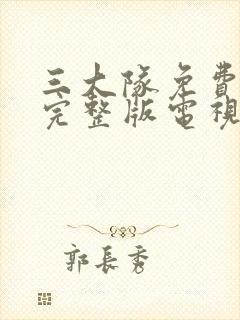 三大隊免費
完整版電視
郭長秀